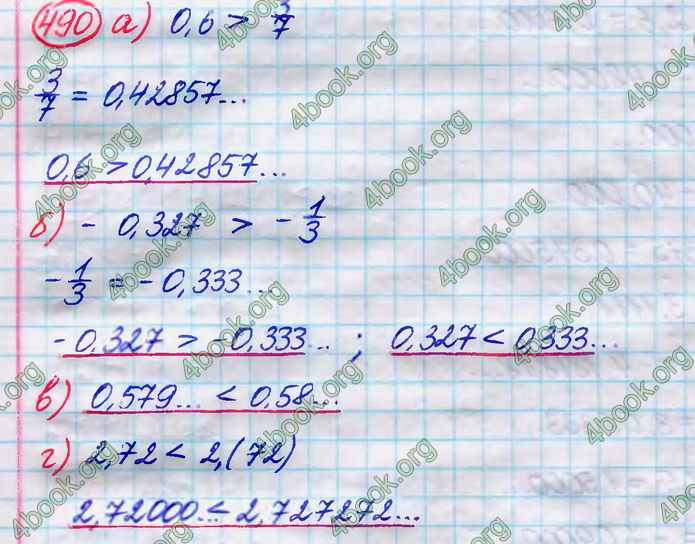 490 а) 0,6 > 3/7
3/7 = 0,42857...
0,6 > 0,42857...
б) - 0,327 > - 1/3
- 1/3 = - 0,333...
- 0,327 > - 0,333... ; 0,327 < 0,333...
в) 0,579... < 0,58...
г) 2,72 < 2,(72)
2,72000... < 2,727272...
4book.org